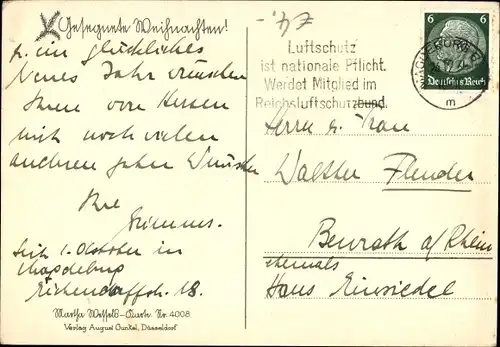 Gesegnete Weihnachten!
u. ein glückliches
Neues Jahr wünschen
Ihnen von Herzen
mit noch vielen
anderen guten Wünschen
Ihre
Grimms.
Seit 1. Oktober in
Magdeburg
Eichendorffstr. 18.
Martha Wessels-Karte Nr. 4008
Verlag August Gunkel, Düsseldorf
Luftschutz
ist nationale Pflicht.
Werdet Mitglied im
Reichsluftschutzbund.
MAGDEBURG
m
6 6
Deutsches Reich
Herrn u. Frau
Walther Flender
Benrath a/Rhein
ehemals
Haus Einsiedel